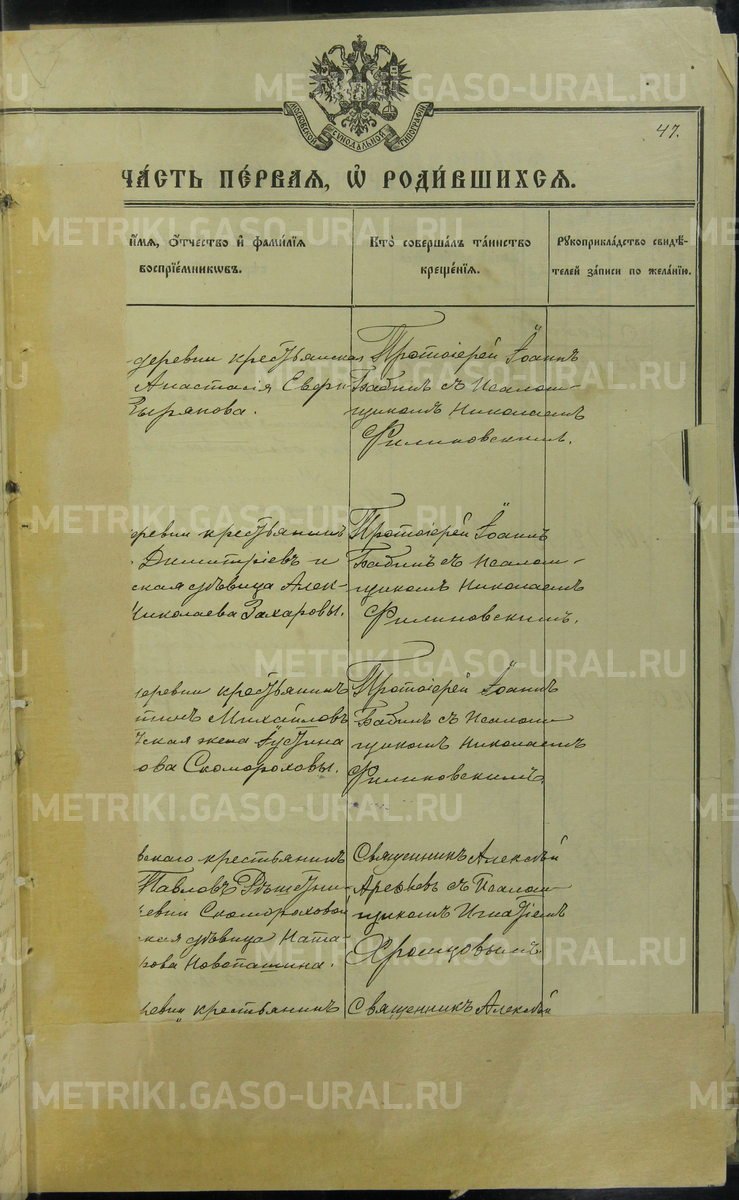 МОСКОВСКОЙ СѴНОДАЛЬНОЙ ТИПОГРАФІИ
47.
ЧА́СТЬ ПЕ́РВАЯ, Ѿ РОДИ́ВШИХСЯ.
И҆́МЯ, Ѻ҆́ТЧЕСТВО И҆ ФАМИ́ЛІЯ
ВОСПРІЕ́МНИКѠВЪ.
КТО̀ СОВЕРША́ЛЪ ТА́ИНСТВО
КРЕЩЕ́НІЯ.
РꙊКОПРИКЛА́ДСТВО СВИДѢ́-
ТЕЛЕЙ ЗА́ПИСИ ПО ЖЕЛА́НІЮ.
деревни крестьянская
Анастасія Евфи-
Зырянова.
Протоіерей Іоаннъ
Бабинъ съ Псалом-
щикомъ Николаемъ
Филиновскимъ.
деревни крестьянинъ
Димитріевъ и
ская дѣвица Алек-
Николаева Захаровы.
Протоіерей Іоаннъ
Бабинъ съ Псалом-
щикомъ Николаемъ
Филиновскимъ.
деревни крестьянинъ
тинъ Михайловъ
ская жена Іустина
ова Скомороховы.
Протоіерей Іоаннъ
Бабинъ съ Псалом-
щикомъ Николаемъ
Филиновскимъ.
вскаго крестьянинъ
Павловъ
ревни Скомороховой
ская дѣвица Ната-
рова Новопашина.
Священникъ Алексѣй
Арефьевъ съ Псалом-
щикомъ Игнатіемъ
Хромцовымъ.
ревни крестьянинъ
Священникъ Алексѣй
METRIKI.GASO-URAL.RU